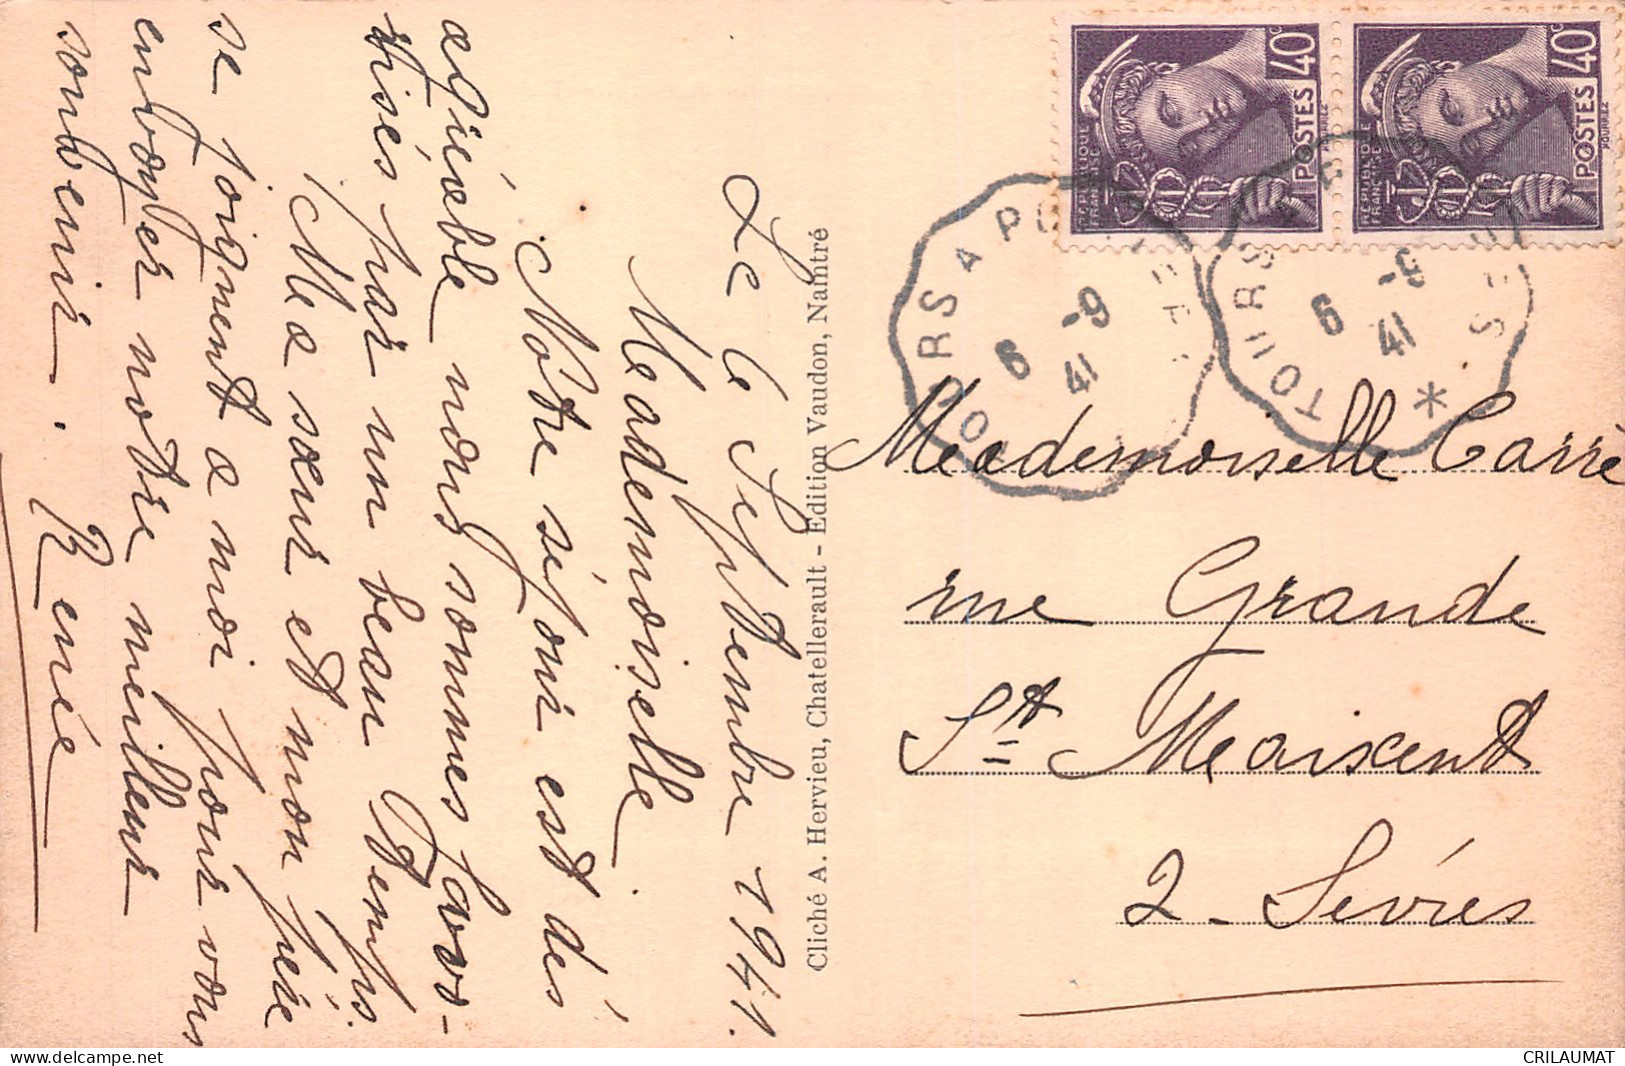 Le 6 Septembre 1941.
Mademoiselle
Nôtre séjour est dés
agréable nous sommes favo-
risés par un beau temps.
Ma sœur et mon père
se joignent a moi pour vous
envoyer notre meilleur
souvenir.
Renée
Cliché A. Hervieu, Chatellerault - Edition Vaudon, Naintré
RÉPUBLIQUE
FRANÇAISE
POSTES
40c
RÉPUBLIQUE
FRANÇAISE
POSTES
40c
POURRIEZ
TOURS A
6 -9
41
TOURS A
6 -9
41
*
Mademoiselle Carré
rue Grande
St Maixent
2 - Sèvres
CRILAUMAT